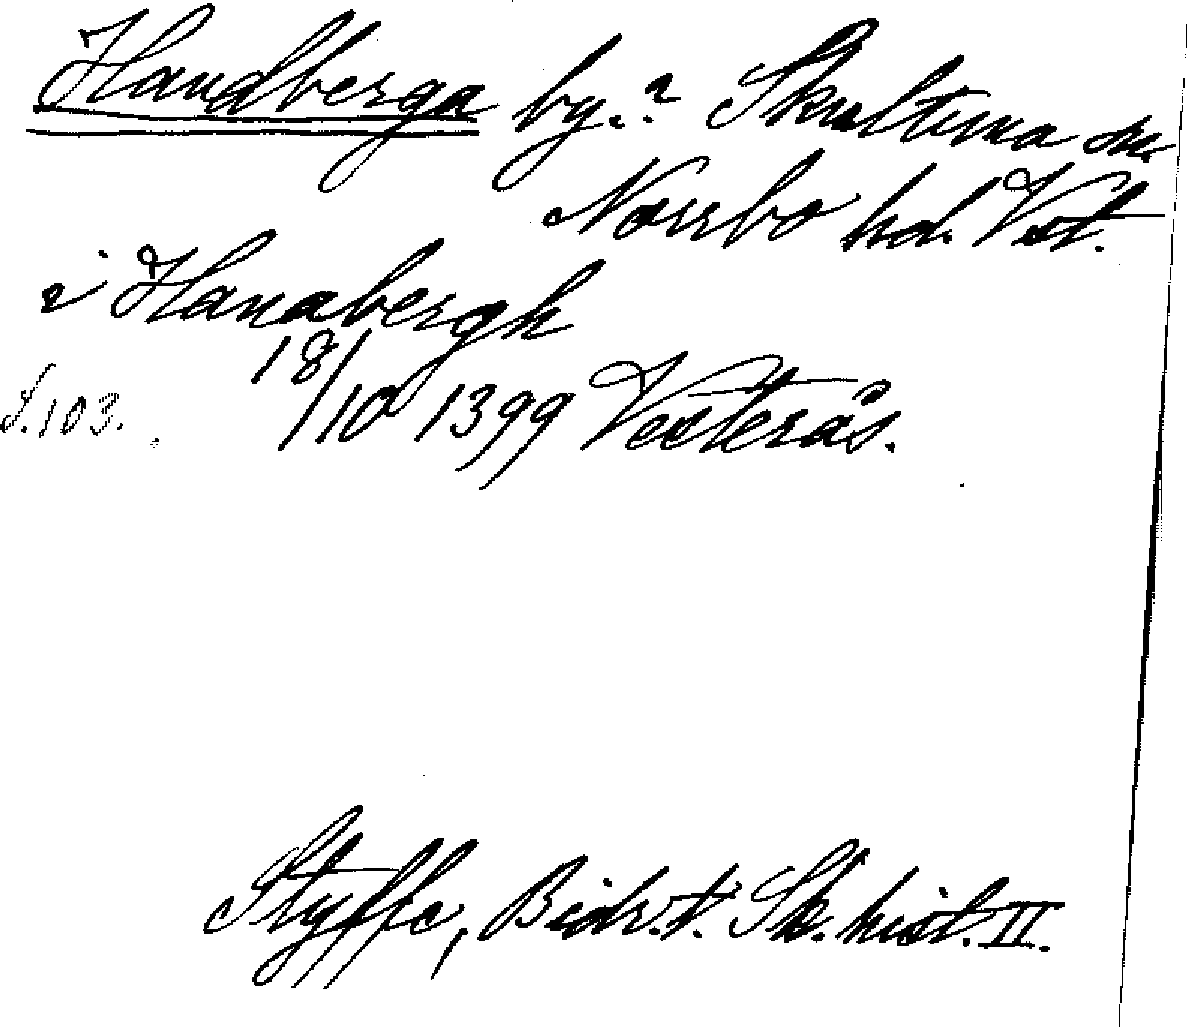 Handberga by.? Skultuna sn.
Norrbo hd. Vst.
i Hanabergh
S. 103. 18/10 1399 Vesterås.
Styffe, Bidr. t. Sk. hist. II.